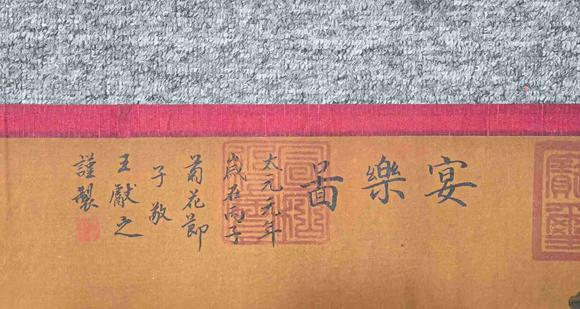 宴樂圖
太元元年
歲在丙子
菊花節
子敬
王獻之
謹製